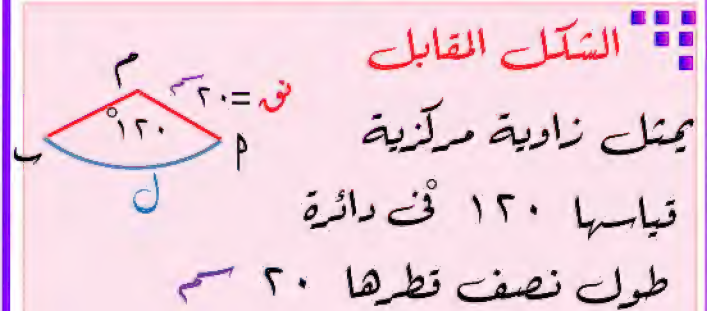 الشكل المقابل
يمثل زاوية مركزية
قياسها ١٢٠° فى دائرة
طول نصف قطرها ٢٠ سم
م
نق = ٢٠ سم
١٢٠°
ب
أ
ل